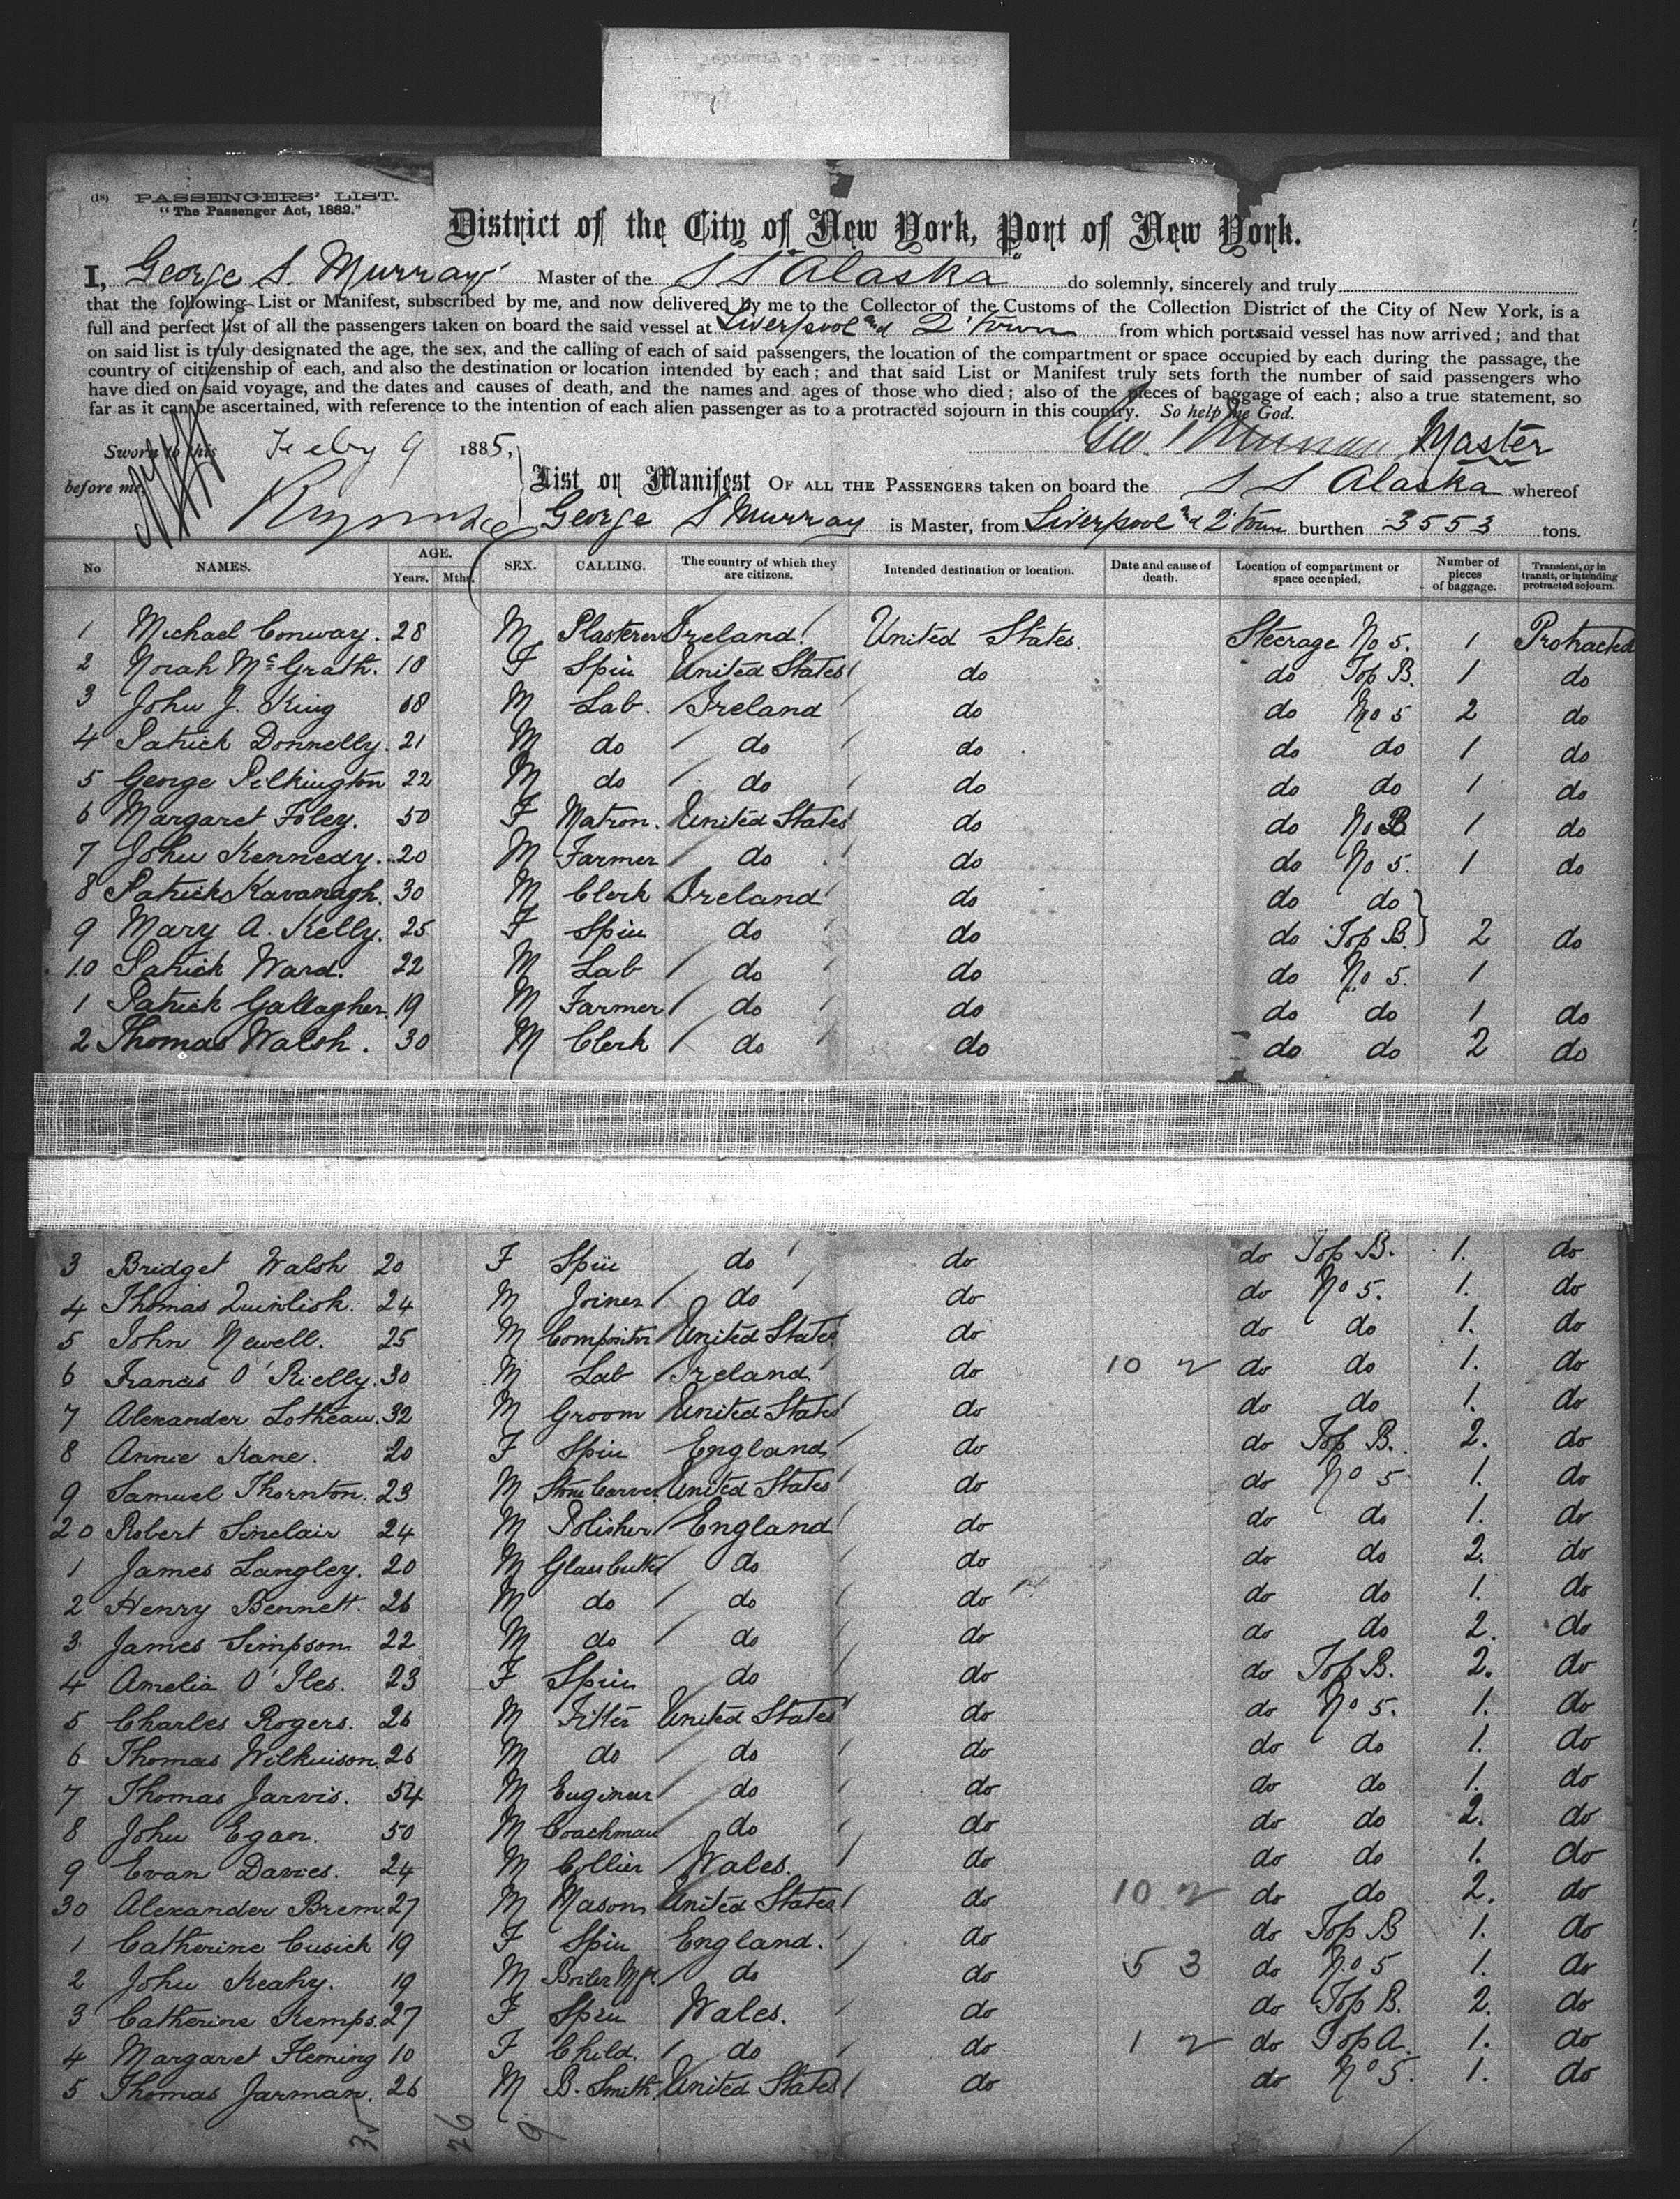 (18) PASSENGERS' LIST.
"The Passenger Act, 1882."
District of the City of New York, Port of New York.
I, George S. Murray Master of the S S "Alaska" do solemnly, sincerely and truly
that the following List or Manifest, subscribed by me, and now delivered by me to the Collector of the Customs of the Collection District of the City of New York, is a
full and perfect list of all the passengers taken on board the said vessel at Liverpool and Q'town from which ports said vessel has now arrived; and that
on said list is truly designated the age, the sex, and the calling of each of said passengers, the location of the compartment or space occupied by each during the passage, the
country of citizenship of each, and also the destination or location intended by each; and that said List or Manifest truly sets forth the number of said passengers who
have died on said voyage, and the dates and causes of death, and the names and ages of those who died; also of the pieces of baggage of each; also a true statement, so
far as it can be ascertained, with reference to the intention of each alien passenger as to a protracted sojourn in this country. So help me God.
Geo. S Murray Master
Sworn to this Feby 9 1885,
before me,
List or Manifest OF ALL THE PASSENGERS taken on board the S S Alaska whereof
George S Murray is Master, from Liverpool and Q'town burthen 3553 tons.
No NAMES. AGE. Years. Mths. SEX. CALLING. The country of which they are citizens. Intended destination or location. Date and cause of death. Location of compartment or space occupied. Number of pieces of baggage. Transient, or in transit, or intending protracted sojourn.
1 Michael Conway. 28 M Plasterer Ireland. United States. Steerage No 5. 1 Protracted
2 Norah McGrath. 18 F Spin United States do do Top B. 1 do
3 John J. King 68 M Lab. Ireland do do No 5 2 do
4 Patrick Donnelly. 21 M do do do do do 1 do
5 George Pilkington 22 M do do do do do 1 do
6 Margaret Foley. 50 F Matron. United States do do No B 1 do
7 John Kennedy. 20 M Farmer do do do No 5. 1 do
8 Patrick Kavanagh. 30 M Clerk Ireland do do do
9 Mary A. Kelly. 25 F Spin do do do Top B. 2 do
10 Patrick Ward. 22 M Lab do do do No 5. 1
1 Patrick Gallagher. 19 M Farmer do do do do 1 do
2 Thomas Walsh. 30 M Clerk do do do do 2 do
3 Bridget Walsh 20 F Spin do do do Top B. 1. do
4 Thomas Quinlish. 24 M Joiner do do do No 5. 1. do
5 John Newell. 25 M Compositor United States do do do 1. do
6 Francis O'Rielly. 30 M Lab Ireland do 10 2 do do 1. do
7 Alexander Lotheau. 32 M Groom United States do do do 1. do
8 Annie Kane. 20 F Spin England do do Top B. 2. do
9 Samuel Thornton. 23 M Stone Carver United States do do No 5 1. do
20 Robert Sinclair 24 M Polisher England do do do 1. do
1 James Langley. 20 M Glass Cutter do do do do 2. do
2 Henry Bennett. 26 M do do do do do 1. do
3 James Simpson 22 M do do do do do 2. do
4 Amelia O'Iles. 23 F Spin do do do Top B. 2. do
5 Charles Rogers. 26 M Fitter United States do do No 5. 1. do
6 Thomas Wilkuison. 26 M do do do do do 1. do
7 Thomas Jarvis. 54 M Engineer do do do do 1. do
8 John Egan. 50 M Coachman do do do do 2. do
9 Evan Davies. 24 M Collier Wales. do do do 1. do
30 Alexander Brem 27 M Mason United States do 10 2 do do 2. do
1 Catherine Cusick 19 F Spin England. do do Top B 1. do
2 John Keahy. 19 M Boiler Mkr. do do 5 3 do No 5 1. do
3 Catherine Kemps. 27 F Spin Wales. do do Top B. 2. do
4 Margaret Fleming 10 F Child. do do 1 2 do Top A. 1. do
5 Thomas Jarman. 26 M B. Smith. United States do do No 5. 1. do
35 26 9